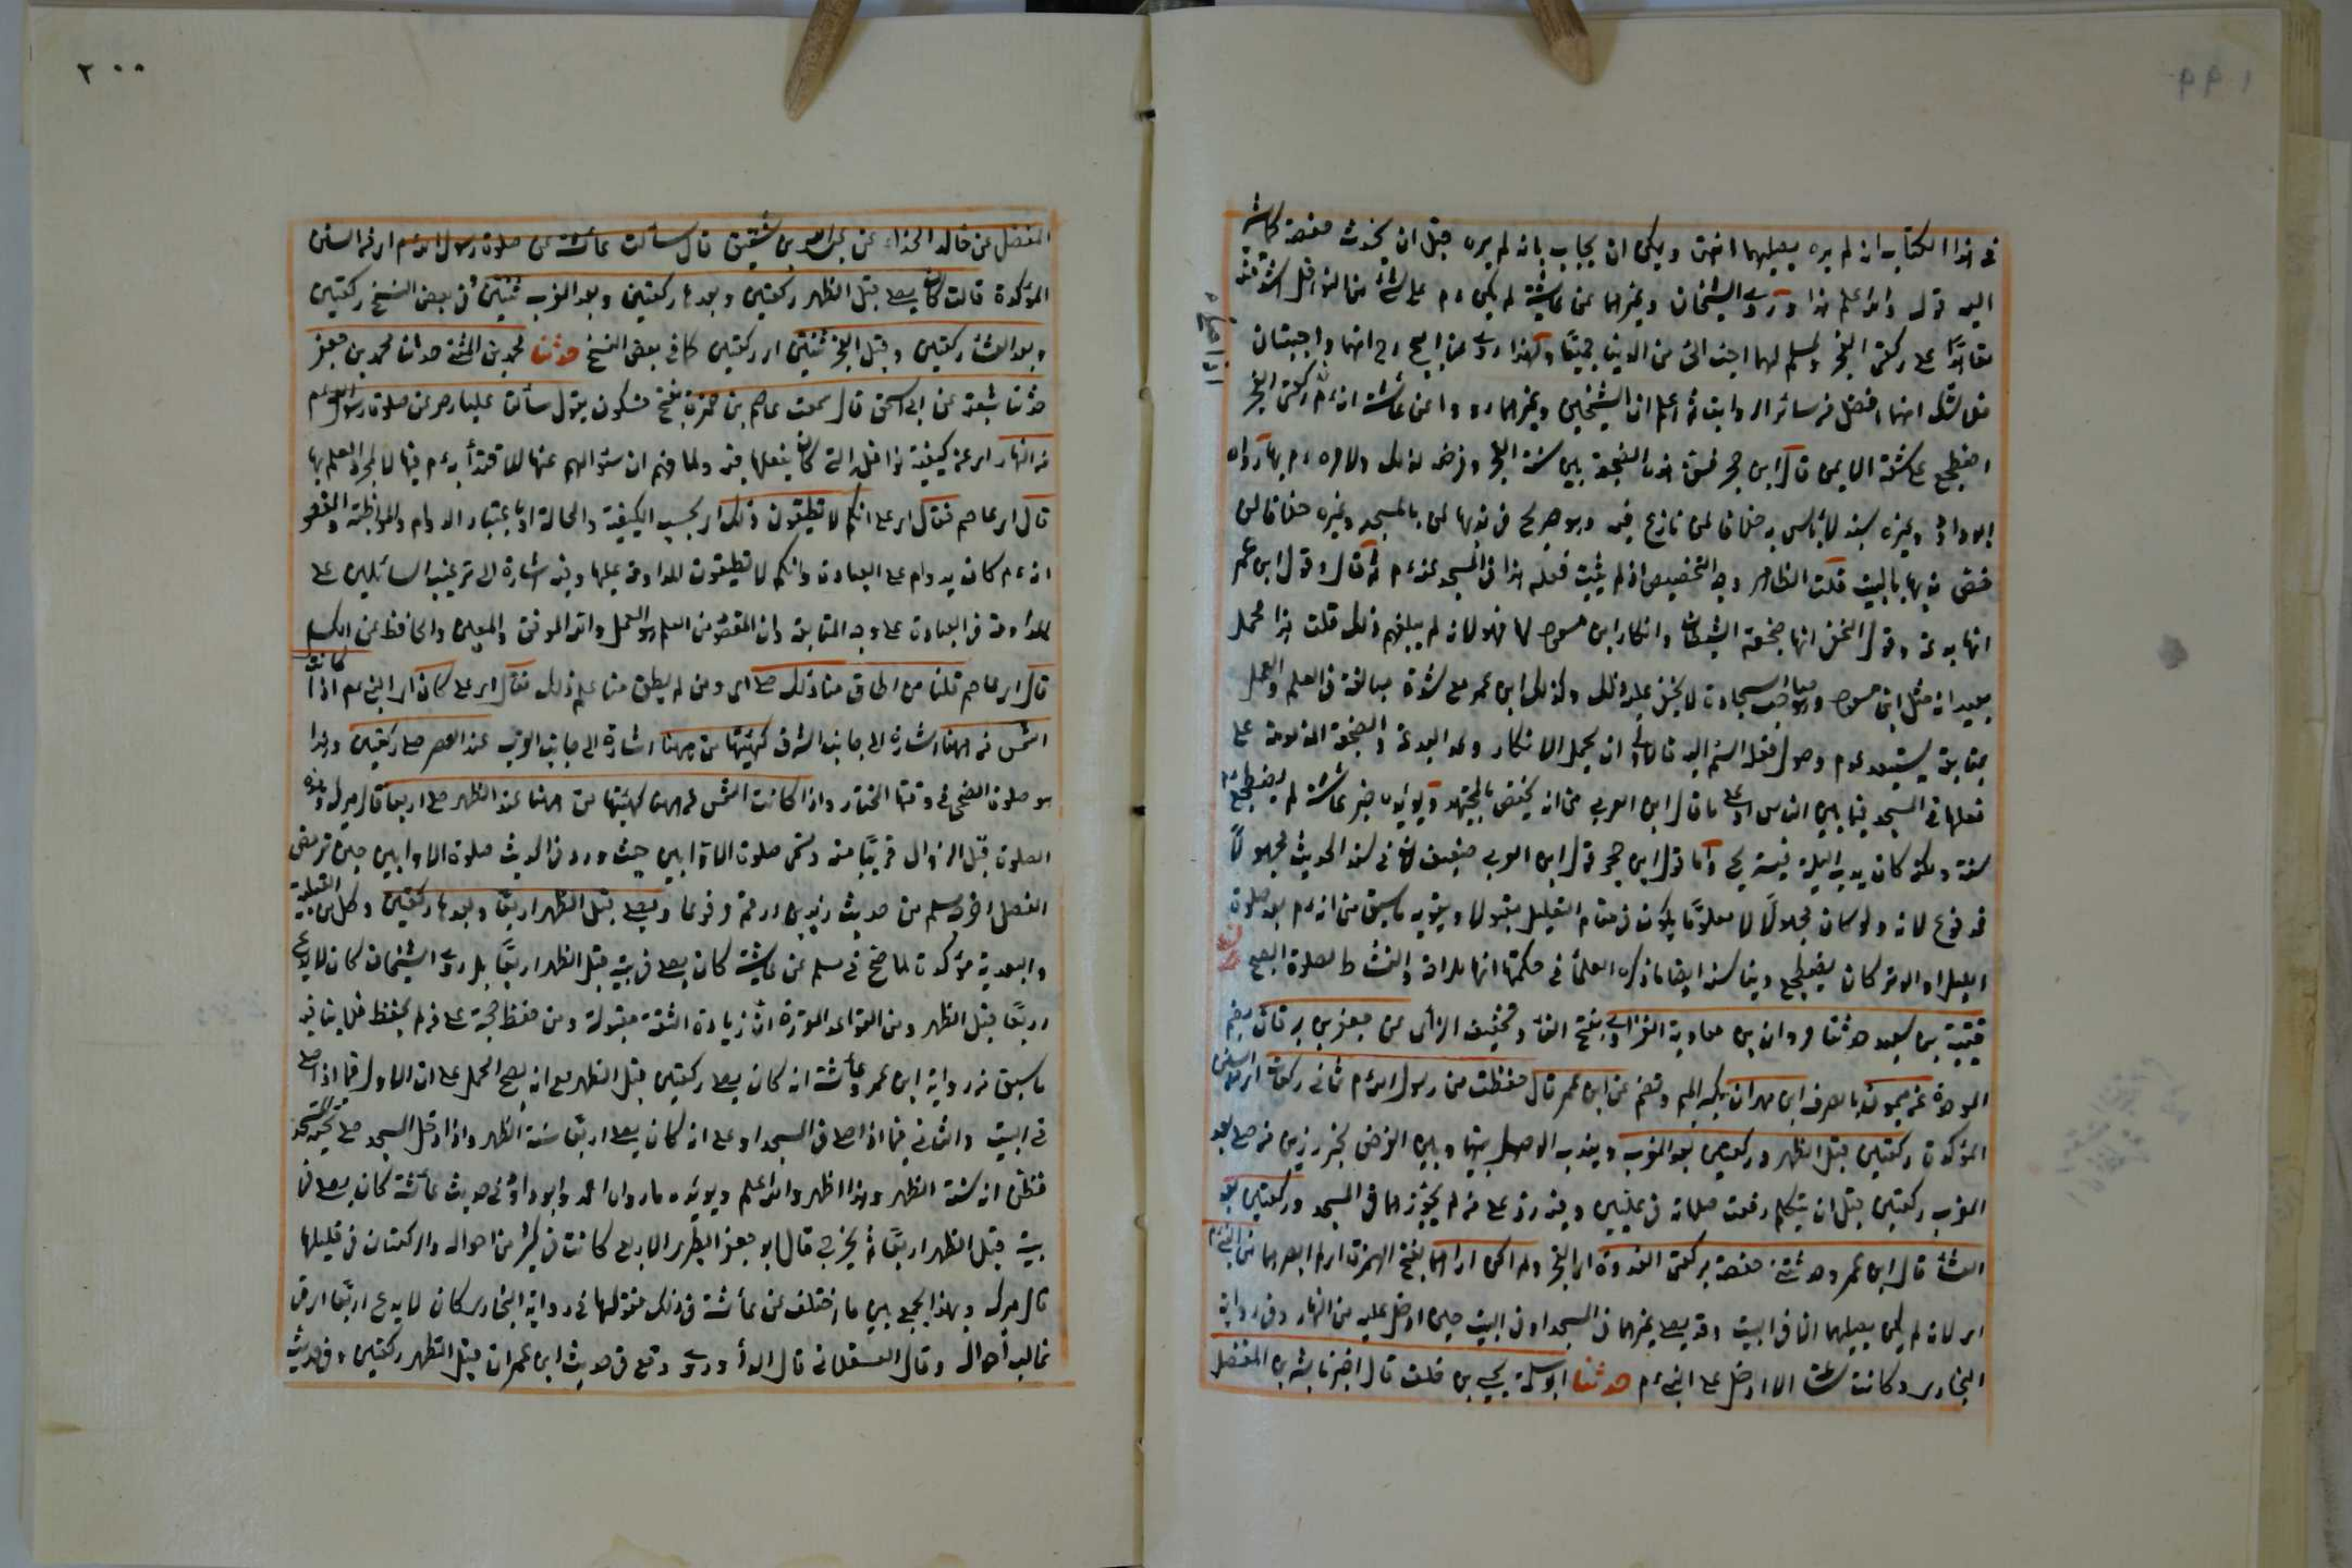 ١٩٩
في هذا الكتاب انه لم يره يصليهما انتهى ويمكن ان يجاب بانه لم يره قبل ان يحدثه حفصة كما يشير
اليه قوله والله اعلم هذا وروى الشيخان وغيرهما عن عائشة لم يكن ءم على شئ من النوافل اشد منه
تعاهدًا على ركعتي الفجر ولمسلم لهما احب الى من الدنيا جميعًا ولهذا روى عن ابي ح رح انهما واجبتان
فلا شك انهما افضل من سائر الرواتب ثم اعلم ان الشيخين وغيرهما رووا عن عائشة انه ءم ركعتي الفجر
اضطجع على شقه الايمن قال ابن حجر فسن هذه الضجعة بين سنة الفجر وفرضه لذلك ولامره ءم بها رواه
ابو داود وغيره بسند لا بأس به خلافا لمن نازع فيه وهو صريح في ندبها لمن بالمسجد وغيره خلافا لمن
خص ندبها بالبيت قلت الظاهر وجه التخصيص اذ لم يثبت فعله هذا في المسجد عنه ءم ثم قال وقول ابن عمر
انها بدعة وقول النخعي انها ضجعة الشيطان وانكار ابن مسعود لها فهو لانه لم يبلغهم ذلك قلت هذا محمل
بعيد اذ مثل ابن مسعود وهو صاحب السجادة لا يخفى عليه ذلك وكذلك ابن عمر مع شدة مبالغته في العلم والعمل
بمتابعته يستبعد عدم وصول فعله المستمر اليه فالاولى ان يحمل الانكار وعد البدعة والضجعة المذمومة على
فعلها في المسجد فيما بين الناس او على ما قال ابن العربي من انه يختص بالمتهجد ويؤيده خبر عائشة لم يضطجع ءم
لسنة ولكنه كان يدأب ليلته فيستريح واما قول ابن حجر قول ابن العربي ضعيف لان في سند الحديث مجهولًا
فمدفوع لانه ولو كان مجهولًا لا معلومًا يكون في مقام التعليل مقبولا ويقويه ما سبق من انه ءم بعد صلوة
الليل او الوتر كان يضطجع ويناسبه ايضا ما ذكره العلماء في حكمتها انها للراحة والنشاط لصلوة الصبح
قتيبة بن سعيد حدثنا مروان بن معاوية الفزارى بفتح الفاء وتخفيف الزاى عن جعفر بن برقان بضم
الموحدة عن ميمون بالصرف ابن مهران بكسر الميم وتضم عن ابن عمر قال حفظت من رسول الله ءم ثماني ركعات اى من السنن
المؤكدة ركعتين قبل الظهر وركعتين بعد المغرب ويندب الوصل بينها وبين الفرض لخبر رزين من صلى بعد
المغرب ركعتين قبل ان يتكلم رفعت صلاته في عليين وفيه رد على من لم يجوزهما في المسجد وركعتين بعد
العشاء قال ابن عمر وحدثتني حفصة بركعتي الغدوة اى الفجر ولم اكن اراهما بفتح الهمزة اى لم ابصرهما من النبي ءم
اى لانه لم يكن يصليهما الا في البيت وقد يصلي غيرهما في المسجد او في البيت حين ادخل عليه من النهار وفي رواية
البخارى وكانت ساعة لا ادخل على النبي ءم حدثنا ابو سلمة يحيى بن خلف قال اخبرنا بشر بن المفضل
٢٠٠
المفضل عن خالد الحذاء عن عبد الله بن شقيق قال سألت عائشة عن صلوة رسول الله ءم اى من السنن
المؤكدة قالت كان يصلي قبل الظهر ركعتين وبعدها ركعتين وبعد المغرب ثنتين وفي بعض النسخ ركعتين
وبعد العشاء ركعتين وقبل الفجر ثنتين اى ركعتين كما في بعض النسخ حدثنا محمد بن المثنى حدثنا محمد بن جعفر
حدثنا شعبة عن ابي اسحق قال سمعت عاصم بن ضمرة بفتح فسكون يقول سألنا عليا رض عن صلوة رسول الله ءم
من النهار اى عن كيفية نوافله التي كان يفعلها فيه ولما فهم ان سؤالهم عنها للاقتداء به ءم فيها لا لمجرد العلم بها
قال اى عاصم فقال اى علي انكم لا تطيقون ذلك اى بحسب الكيفية والحالة او باعتبار الدوام والمواظبة والمقصود
انه ءم كان يداوم على العبادة وانكم لا تطيقون المداومة عليها وفيه اشارة الى ترغيب السائلين على
المداومة في العبادة على وجه المتابعة وان المقصود من العلم هو العمل والله الموفق والمعين والحافظ عن الكسل
قال اى عاصم قلنا من اطاق منا ذلك صلى اى ومن لم يطق منا علم ذلك فقال اى علي كان اى النبي ءم اذا كانت
الشمس من ههنا اشارة الى جانب الشرق كهيئتها من ههنا اشارة الى جانب الغرب عند العصر صلى ركعتين وهذا
هو صلوة الضحى في وقتها المختار واذا كانت الشمس من ههنا كهيئتها من ههنا عند الظهر صلى اربعا قال ميرك وهذه
الصلوة قبل الزوال قريبًا منه وتسمى صلوة الاوابين حيث ورد في الحديث صلوة الاوابين حين ترمض
الفصال اخرجه مسلم من حديث زيد بن ارقم مرفوعا ويصلي قبل الظهر اربعًا وبعدها ركعتين وكل من القبلية
والبعدية مؤكدة لما صح في مسلم عن عائشة كان يصلي في بيته قبل الظهر اربعًا بل روى الشيخان كان لا يدع
اربعًا قبل الظهر ومن القواعد المقررة ان زيادة الثقة مقبولة ومن حفظ حجة على من لم يحفظ فلا ينافيه
ما سبق من رواية ابن عمر وعائشة انه كان يصلي ركعتين قبل الظهر مع انه يصح الحمل على ان الاول فيما اذا صلى
في البيت والثاني فيما اذا صلى في المسجد او على انه كان يصلي اربعًا سنة الظهر واذا دخل المسجد صلى تحية المسجد
فظن انه سنة الظهر وهذا اظهر والله اعلم ويؤيده ما رواه احمد وابو داود في حديث عائشة كان يصلي في
بيته قبل الظهر اربعًا ثم يخرج قال ابو جعفر الطبرى الاربع كانت في كثير من احواله والركعتان في قليلها
قال ميرك وبهذا يجمع بين ما اختلف عن عائشة في ذلك فقولها في رواية البخارى كان لا يدع اربعًا اى في
غالب احواله وقال العسقلانى قال الداودى وقع في حديث ابن عمر ان قبل الظهر ركعتين وفي حديث